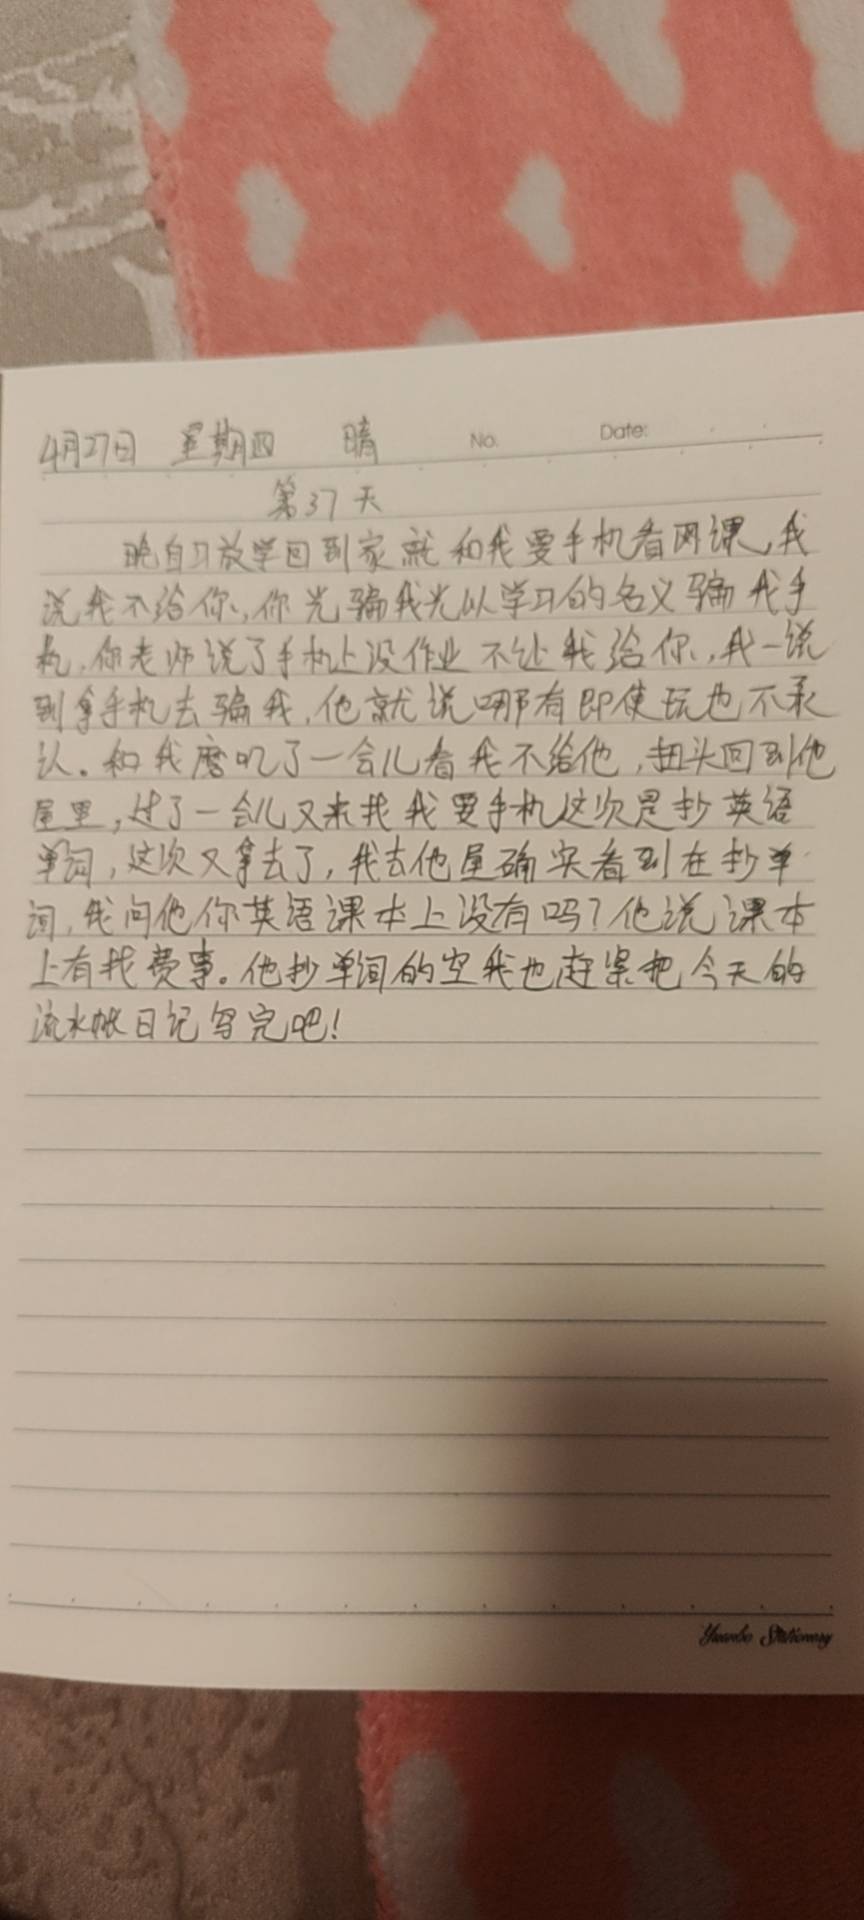 4月27日 星期四 晴 No. Date:
第37天
晚自习放学回到家就和我要手机看网课,我
说我不给你,你光骗我光以学习的名义骗我手
机,你老师说了手机上没作业不让我给你,我一说
到拿手机去骗我,他就说哪有即使玩也不承
认。和我磨叽了一会儿看我不给他,扭头回到他
屋里,过了一会儿又来找我要手机这次是抄英语
单词,这次又拿去了,我去他屋确实看到在抄单
词,我问他你英语课本上没有吗?他说课本
上有找费事。他抄单词的空我也赶紧把今天的
流水帐日记写完吧!
Yuanbo Stationery